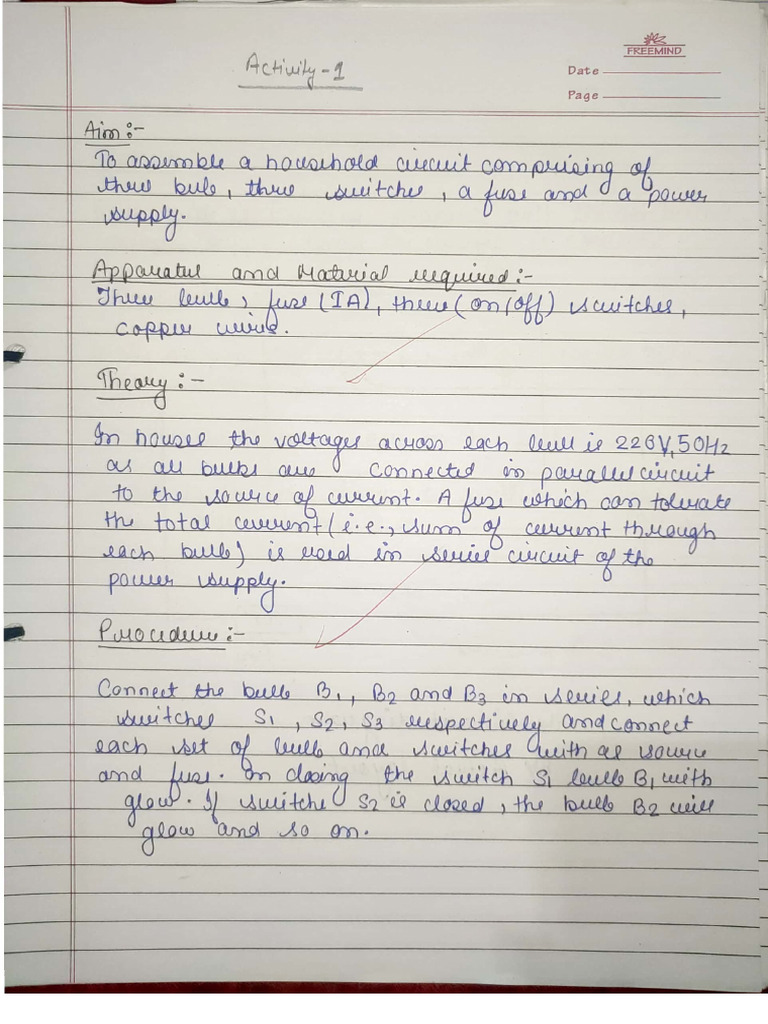 FREEMIND
Activity-1
Date
Page
Aim:-
To assemble a household circuit comprising of
three bulb, three switches, a fuse and a power
supply.
Apparatus and Material required:-
Three bulb, fuse (1A), three (on/off) switches,
copper wires.
Theory:-
In houses the voltages across each bulb is 220V, 50Hz
as all bulbs are connected in parallel circuit
to the source of current. A fuse which can tolerate
the total current (i.e., sum of current through
each bulb) is used in series circuit of the
power supply.
Procedure:-
Connect the bulb B1, B2 and B3 in series, which
switches S1, S2, S3 respectively and connect
each set of bulb and switches with as source
and fuse. On closing the switch S1 bulb B1 with
glow. If switche S2 is closed, the bulb B2 will
glow and so on.